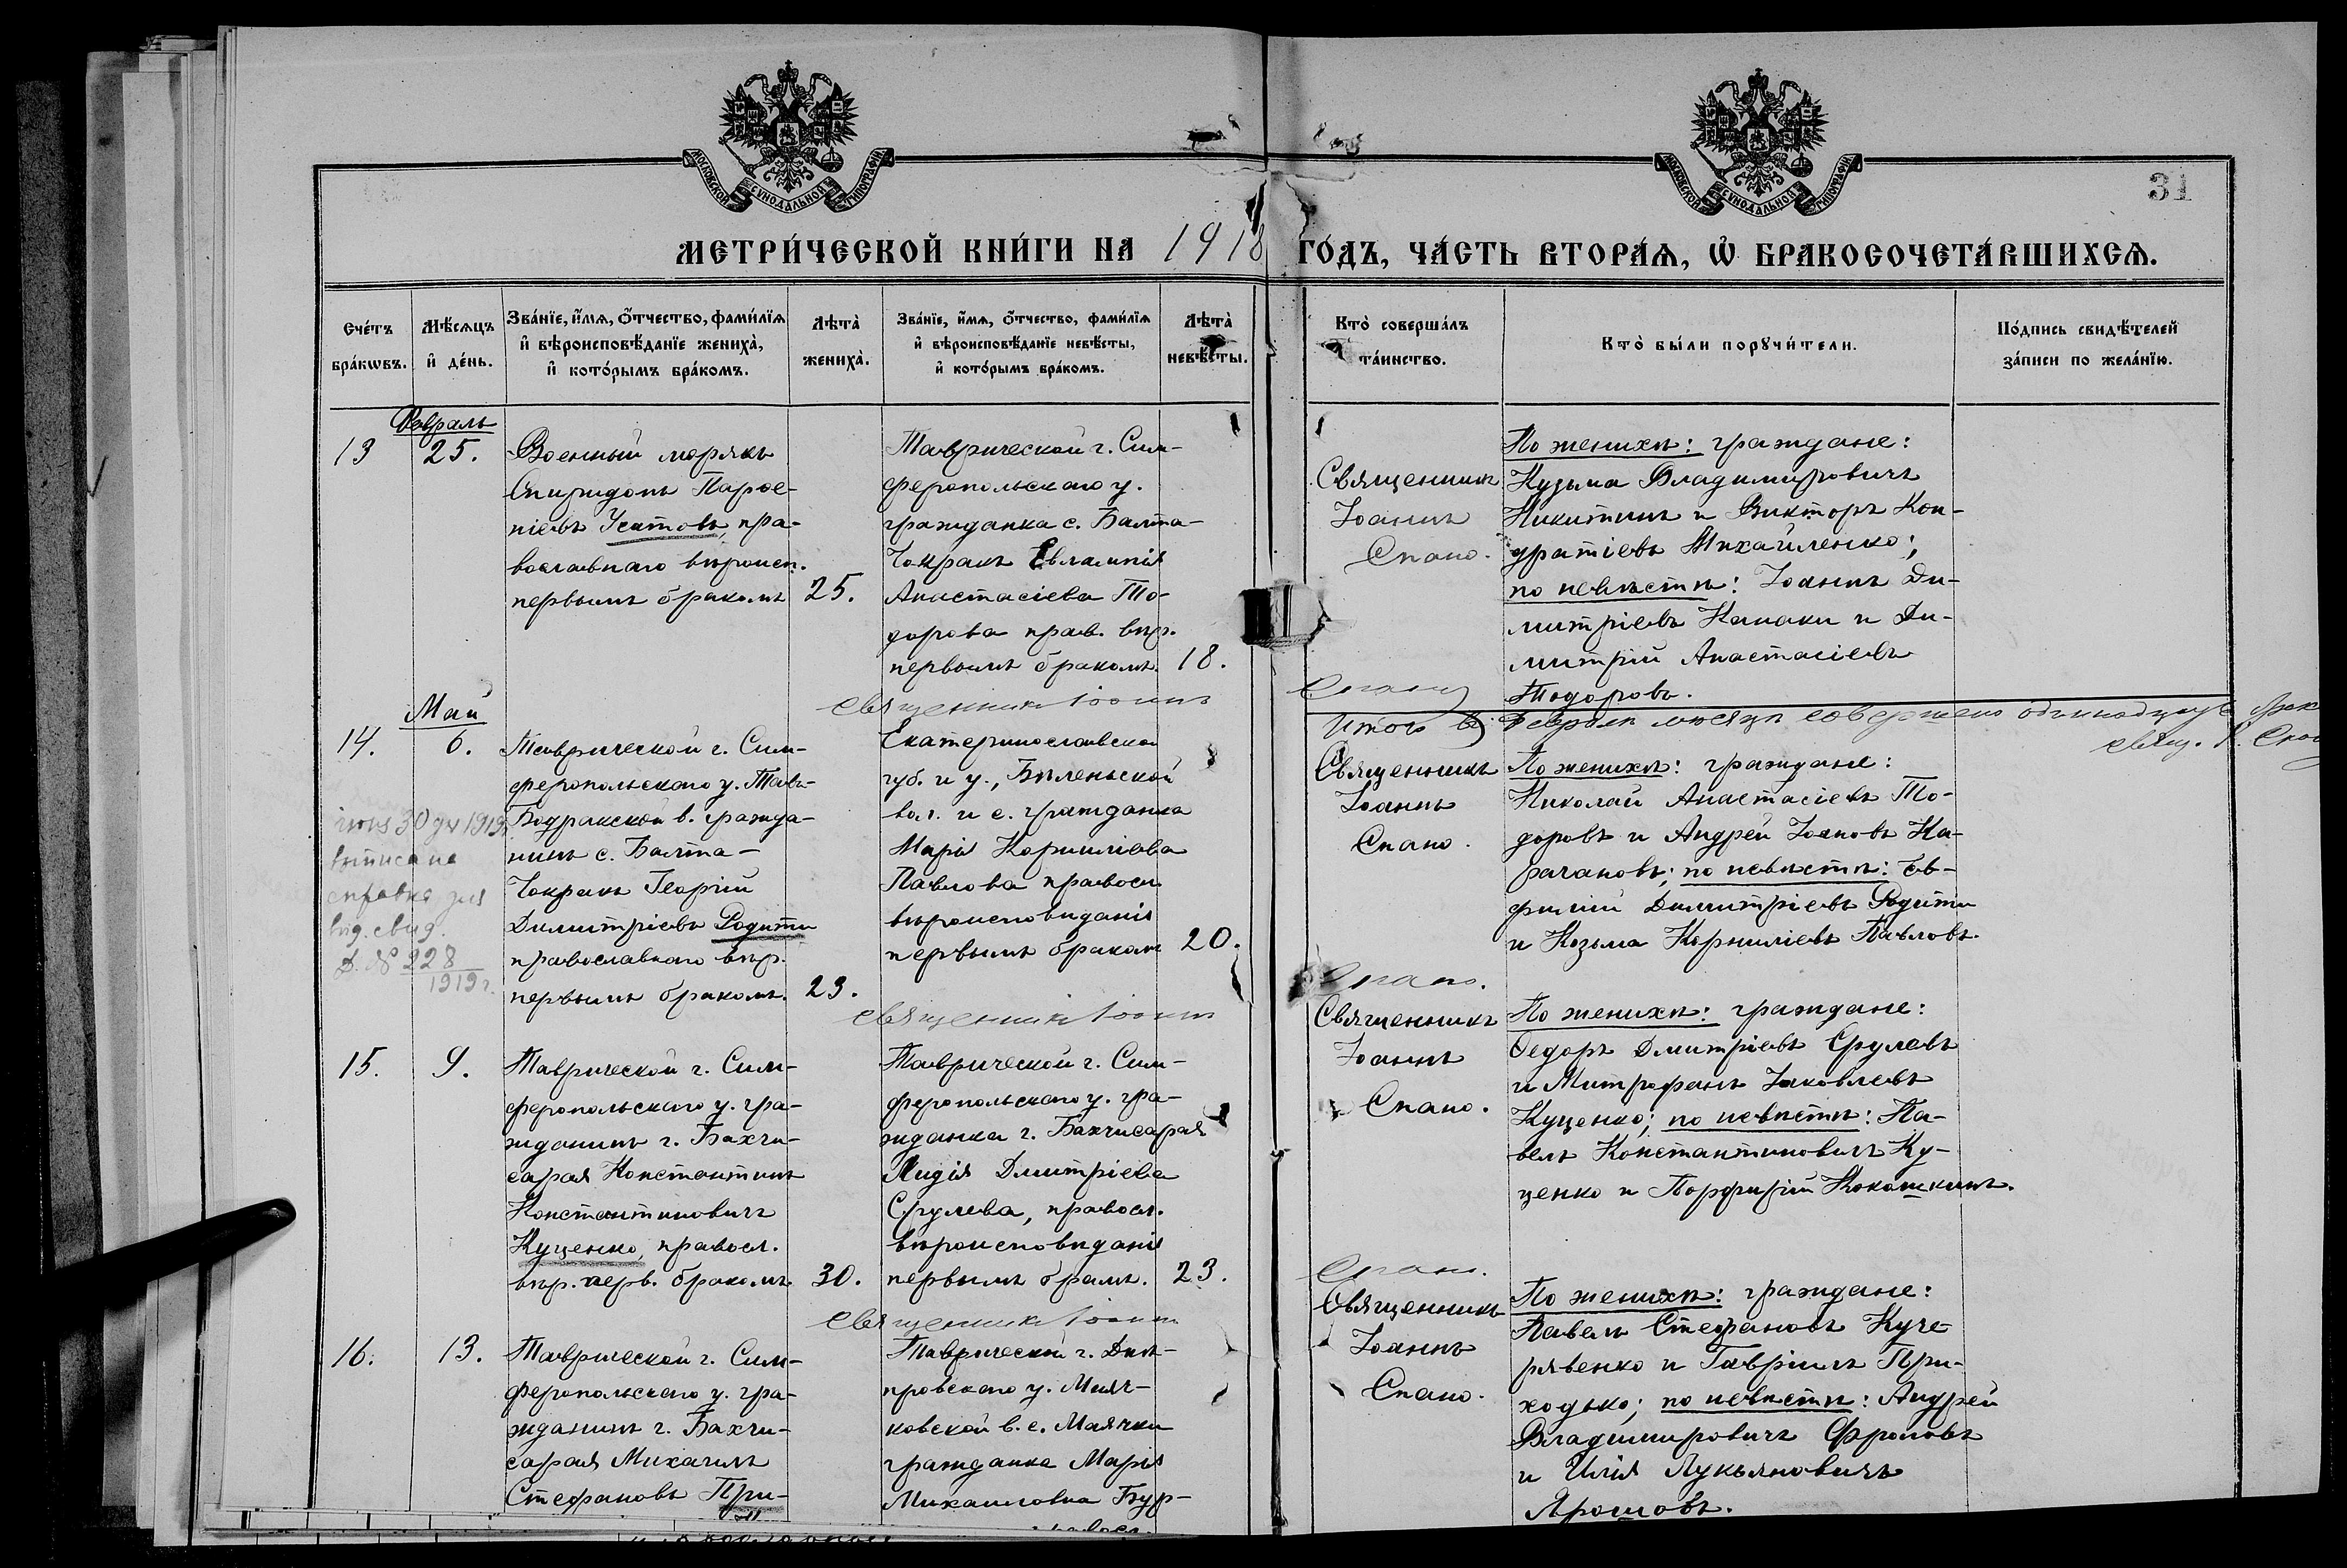 МОСКОВСКОЙ СѴНОДАЛЬНОЙ ТИПОГРАФІИ
МОСКОВСКОЙ СѴНОДАЛЬНОЙ ТИПОГРАФІИ
31
МЕТРИ́ЧЕСКОЙ КНИ́ГИ НА 1918 ГО́ДЪ, ЧА́СТЬ ВТОРА́Ѧ, Ѡ҆ БРАКОСОЧЕТА́ВШИХСѦ.
Сче́тъ бра́кѡвъ.
Мѣ́сѧцъ и҆ де́нь.
Зва́нїе, и҆́мѧ, ѻ҆́тчество, фами́лїѧ и҆ вѣроисповѣ́данїе жениха̀, и҆ кото́рымъ бра́комъ.
Лѣта̀ жениха̀.
Зва́нїе, и҆́мѧ, ѻ҆́тчество, фами́лїѧ и҆ вѣроисповѣ́данїе невѣ́сты, и҆ кото́рымъ бра́комъ.
Лѣта̀ невѣ́сты.
Кто̀ соверша́лъ та́инство.
Кто̀ бы́ли порꙋчи́тели.
По́дпись свидѣ́телей за́писи по жела́нїю.
Февраль
13
25.
Военный морякъ
Спиридонъ Парѳе-
ніевъ Усатовъ, пра-
вославнаго вѣроисп.
первымъ бракомъ
25.
Таврической г. Сим-
феропольскаго у.
гражданка с. Балта-
Чокракъ Евлампія
Анастасіева То-
дорова прав. вѣр.
первымъ бракомъ.
18.
Священникъ
Іоаннъ
Спано.
По женихѣ: граждане:
Кузьма Владимировичъ
Никитинъ и Викторъ Кон-
дратіевъ Михайленко;
по невѣстѣ: Іоаннъ Ди-
митріевъ Канаки и Ди-
митрій Анастасіевъ
Тодоровъ.
священникъ Іоаннъ Спано
Итого въ Февралѣ мѣсяцѣ совершено одиннадцать брак
свящ. І. Спано
Май
14.
6.
Таврической г. Сим-
феропольскаго у. Тавъ-
Бодракской в. гражда-
нинъ с. Балта-
Чокракъ Георгій
Димитріевъ Родити
православнаго вѣр.
первымъ бракомъ.
23.
Екатеринославской
губ. и у., Бѣленьской
вол. и с. гражданка
Марія Корниліева
Павлова правосл.
вѣроисповѣданія
первымъ бракомъ
20.
Священникъ
Іоаннъ
Спано.
По женихѣ: граждане:
Николай Анастасіевъ То-
доровъ и Андрей Іоановъ Ка-
рачановъ; по невѣстѣ: Ев-
фимій Димитріевъ Родити
и Козьма Корниліевъ Павловъ.
іюня 30 дн 1919г.
выписана
справка для
выд. свид.
Д. № 228
1919 г.
священникъ Іоаннъ Спано.
15.
9.
Таврической г. Сим-
феропольскаго у. гра-
жданинъ г. Бахчи-
сарая Константинъ
Константиновичъ
Куценко, правосл.
вѣр. перв. бракомъ
30.
Таврической г. Сим-
феропольскаго у. гра-
жданка г. Бахчисарая
Лидія Дмитріева
Срулева, правосл.
вѣроисповѣданія
первымъ бракъ.
23.
Священникъ
Іоаннъ
Спано.
По женихѣ: граждане:
Ѳедоръ Дмитріевъ Срулевъ
и Митрофанъ Іаковлевъ
Куценко; по невѣстѣ: Па-
велъ Константиновичъ Ку-
ценко и Порфирій Кокошкинъ.
священникъ Іоаннъ Спано.
16.
13.
Таврической г. Сим-
феропольскаго у. гра-
жданинъ г. Бахчи-
сарая Михаилъ
Стефановъ При-
Таврической г. Днѣ-
провскаго у. Маяч-
ковской в. с. Маячки
гражданка Марія
Михаиловна Бур-
Священникъ
Іоаннъ
Спано.
По женихѣ: граждане:
Павелъ Стефановъ Куче-
рявенко и Гавріилъ При-
ходько; по невѣстѣ: Андрей
Владимировичъ Фроловъ
и Илія Лукьяновичъ
Ярошовъ.